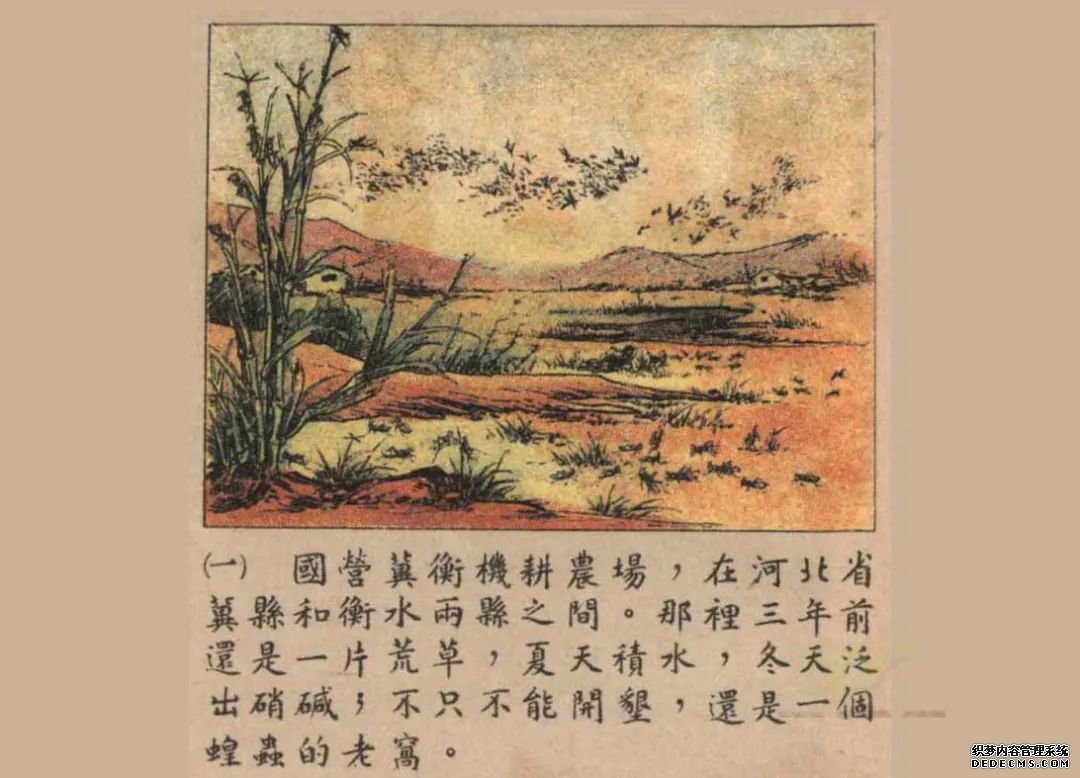 ㈠ 國營冀衡機耕農場，在河北省
冀縣和衡水兩縣之間。那裡三年前
還是一片荒草，夏天積水，冬天泛
出硝碱；不只不能開墾，還是一個
蝗蟲的老窩。
织梦内容管理系统
DEDECMS.COM